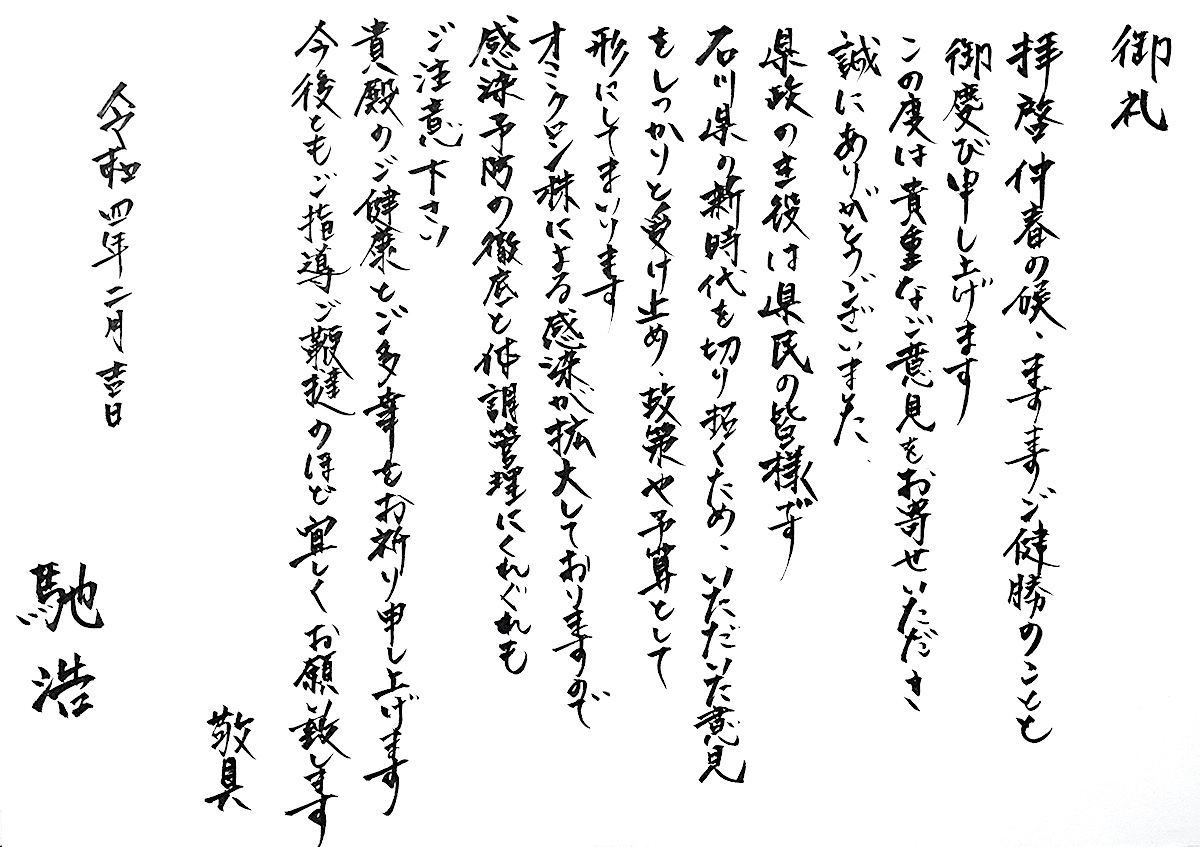 御礼
拝啓 仲春の候、ますますご健勝のことと
御慶び申し上げます
この度は貴重なご意見をお寄せいただき
誠にありがとうございました、
県政の主役は県民の皆様です
石川県の新時代を切り拓くため、いただいた意見
をしっかりと受け止め、政策や予算として
形にしてまいります
オミクロン株による感染が拡大しておりますので
感染予防の徹底と体調管理にくれぐれも
ご注意下さい
貴殿のご健康とご多幸をお祈り申し上げます
今後ともご指導ご鞭撻のほど宜しくお願い致します
敬具
令和四年二月吉日
馳浩